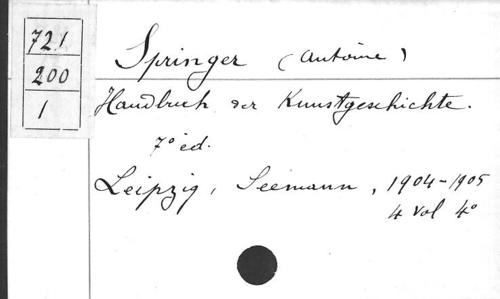 721
200
1
Springer (Antoine)
Handbuch der Kunstgeschichte.
7° ed.
Leipzig, Seemann, 1904-1905
4 vol 4°